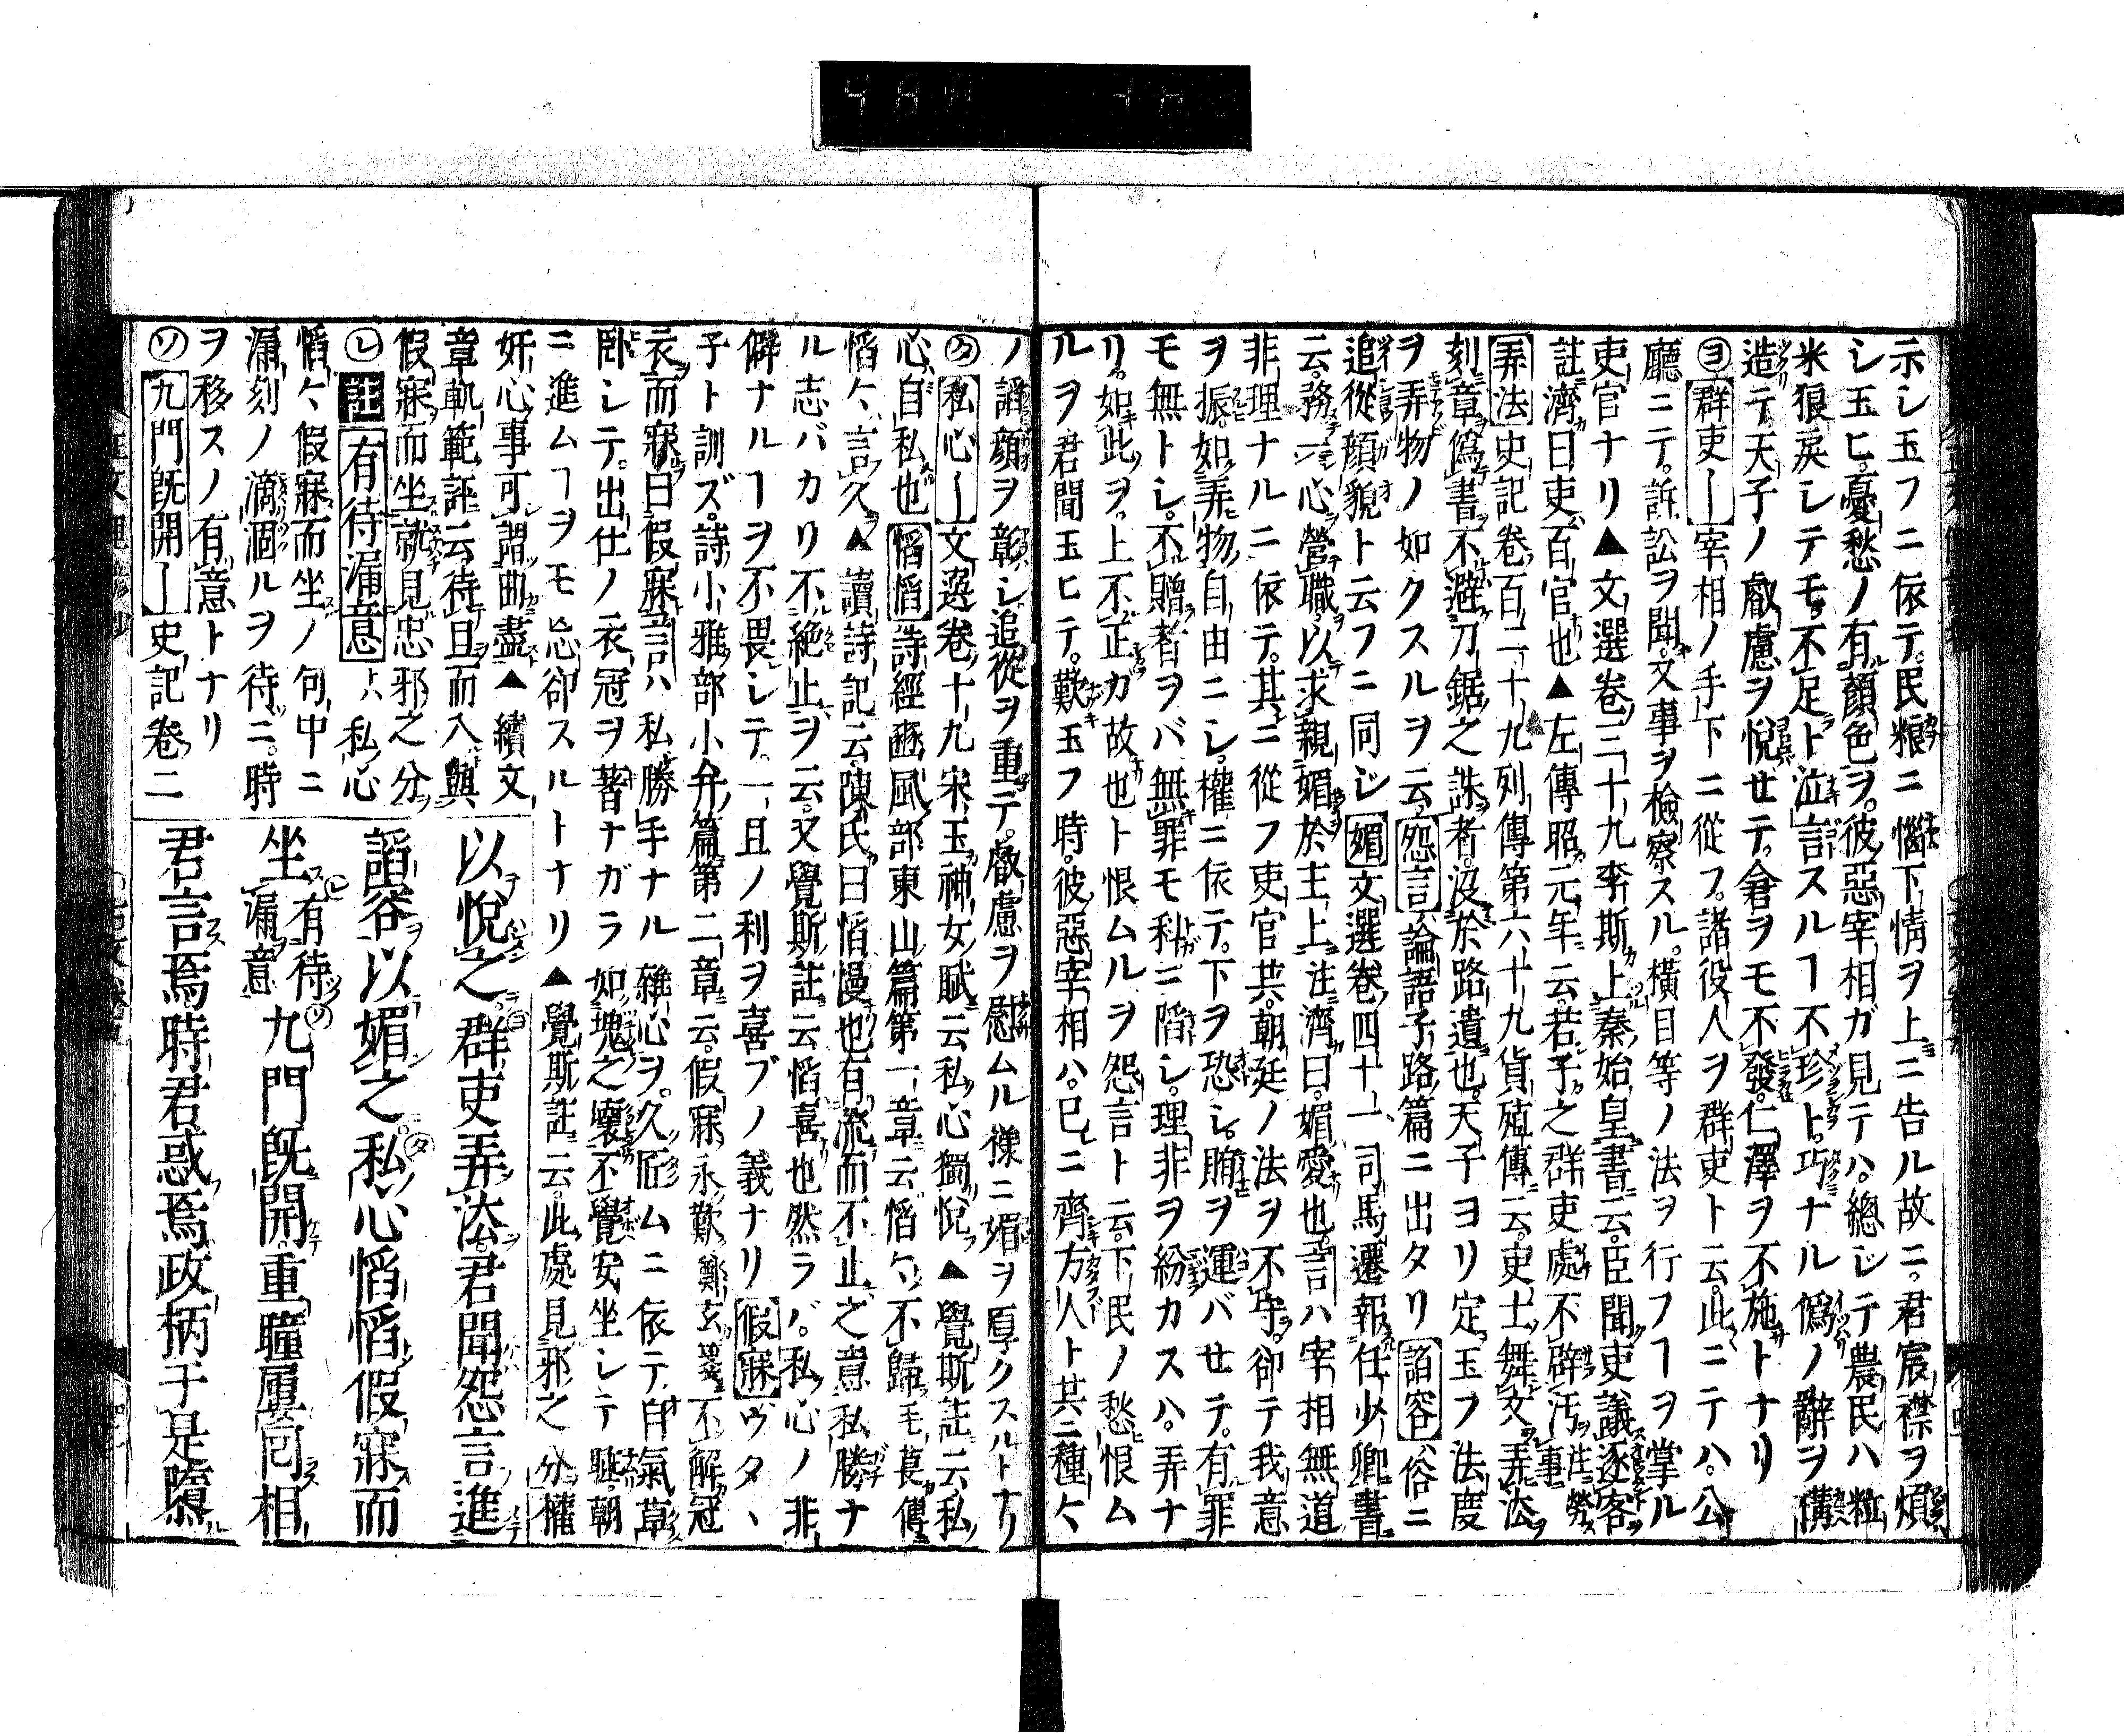 示シ玉フニ依テ。民粮ニ惱下情ヲ上ニ告ル故ニ。君宸襟ヲ煩
シ玉ヒ。憂愁ノ有顏色ヲ。彼惡宰相ガ見テハ。總ジテ農民ハ粒
米狼戾シテモ。不足ト泣言スルヿ不珍ト。巧ナル僞ノ辭ヲ構
造テ。天子ノ叡慮ヲ悅セテ。倉ヲモ不發。仁澤ヲ不施トナリ
㋵群吏｜宰相ノ手下ニ從フ。諸役人ヲ群吏ト云。此ニテハ。公
廳ニテ。訴訟ヲ聞。又事ヲ檢察スル。橫目等ノ法ヲ行フヿヲ掌ル
吏官ナリ▲文選卷三十九李斯上秦始皇書云。臣聞吏議逐客
註濟曰吏百官也▲左傳昭元年云。若子之群吏處不辟汚註事勞
弄法史記卷百二十九列傳第六十九貨殖傳云。吏士舞文弄法
刻章僞書。不避刀鋸之誅者。沒於路遺也。天子ヨリ定玉フ法度
ヲ弄物ノ如クスルヲ云。怨言論語子路篇ニ出タリ諂容俗ニ
追從顏貌ト云フニ同シ媚文選卷四十一司馬遷報任少卿書
云。務一心營職。以求親媚於主上注濟曰。媚愛也。言ハ宰相無道
非理ナルニ依テ。其ニ從フ吏官共。朝廷ノ法ヲ不守。卻テ我意
ヲ振。如弄物自由ニシ。權ニ依テ。下ヲ恐シ。賄ヲ運バセテ。有罪
モ無トシ。不贈者ヲバ無罪モ科ニ陷シ。理非ヲ紛カスハ。弄ナ
リ。如此ヲ。上不正カ故也ト恨ムルヲ怨言ト云。下民ノ愁恨ム
ルヲ君聞玉ヒテ。歎玉フ時。彼惡宰相ハ。已ニ齊方人ト共ニ種々
ノ諂顏ヲ彰シ追從ヲ重テ。叡慮ヲ慰ムル樣ニ媚ヲ厚クスルトナリ
㋟私心｜文選卷十九宋玉神女賦云私心獨悅▲覺斯註云私
心自私也慆慆詩經豳風部東山篇第一章云慆々不歸毛萇傳
慆々言久▲讀詩記云。陳氏曰慆慢也有流而不止之意私勝ナ
ル志バカリ不絶止ヲ云。又覺斯註云慆喜也然ラバ。私心ノ非
僻ナルヿヲ不畏シテ。一旦ノ利ヲ喜ブノ義ナリ假寐ウタヽ
子ト訓ズ。詩小雅部小弁篇第二章云。假寐永歎鄭玄箋不解冠
衣而寐曰假寐言ハ私勝手ナル雜心ヲ。久匿ムニ依テ自氣草
臥シテ。出仕ノ衣冠ヲ著ナガラ如塊之壞不覺安坐シテ睡。朝
ニ進ムヿヲモ忘卻スルトナリ▲覺斯註云。此處見邪之分權
奸心事可謂曲盡▲續文
章軌範註云待旦而入與
假寐而坐就見忠邪之分
㋹註有待漏意ハ私心
慆々假寐而坐ノ句中ニ
漏刻ノ滴涸ルヲ待ニ。時
ヲ移スノ有意トナリ
㋞九門既開｜史記卷二
以悅之。群吏弄法。君聞怨言。進
諂容以媚之。私心慆慆假寐而
坐有待漏意九門既開。重瞳屢囘相
君言焉時君惑焉政柄于是隳